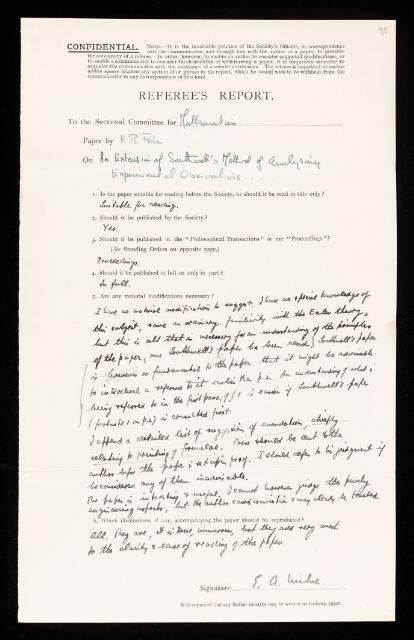 98
CONFIDENTIAL. NOTE.—It is the invariable practice of the Society's Officers, in correspondence
with the communicator, and through him with the author of a paper, to preserve
the anonymity of a referee. In order, however, to enable an author to consider suggested modifications, or
to enable a communicator to consider the desirability of withdrawing a paper, it is frequently desirable to
acquaint the communicator with the substance of a referee's criticisms. The referee is requested to enclose
within square brackets any section of or phrase in this report, which he would wish to be withheld from the
communicator in any correspondence of this kind.
REFEREE'S REPORT.
To the Sectional Committee for Mathematics
Paper by H R
On An Extension of Southwell's Method of Analysing
Experimental Observations...
1. Is the paper suitable for reading before the Society, or should it be read in title only?
Suitable for reading.
2. Should it be published by the Society?
Yes.
3. Should it be published in the "Philosophical Transactions" or the "Proceedings"?
(See Standing Orders on opposite page.)
Proceedings
4. Should it be published in full or only in part?
In full.
5. Are any material modifications necessary?
I have no material modification to suggest. I have no special knowledge of
this subject, save an ordinary familiarity with the Euler theory,
but this is all that is necessary for an understanding of the principles
of the paper, once Southwell's paper has been read. Southwell's paper
is however so fundamental to the paper that it might be advisable
to introduce a reference to it earlier than p.2. An understanding of what is
being referred to in the first para. of §1 is easier if Southwell's paper
(footnote 1 on p.2) is consulted first.
I append a detailed list of suggestions of emendation, chiefly
relating to printing of formulae. These should be sent to the
author before the paper is set up in proof. I should defer to his judgment if
he considered any of them inadvisable.
The paper is interesting & useful. I cannot however judge the purely
engineering aspects, but the author's and may clearly be trusted.
6. Which illustrations, if any, accompanying the paper should be reproduced?
All. They are, it is true, numerous, but they add very much
to the clarity & ease of reading of the paper.
Signature E. A. Milne.
It is requested that any further remarks may be written on foolscap paper.